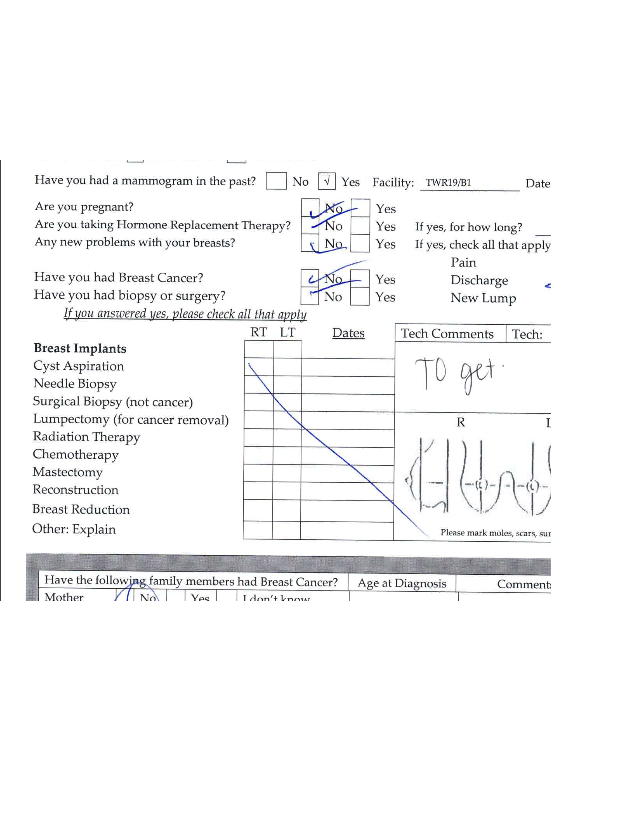 Have you had a mammogram in the past? No √ Yes Facility: TWR19/B1 Date
Are you pregnant? No Yes
Are you taking Hormone Replacement Therapy? No Yes If yes, for how long?
Any new problems with your breasts? No Yes If yes, check all that apply
Pain
Have you had Breast Cancer? No Yes Discharge
Have you had biopsy or surgery? No Yes New Lump
If you answered yes, please check all that apply
RT LT Dates Tech Comments Tech:
Breast Implants
Cyst Aspiration TO get
Needle Biopsy
Surgical Biopsy (not cancer)
Lumpectomy (for cancer removal) R L
Radiation Therapy
Chemotherapy
Mastectomy
Reconstruction
Breast Reduction
Other: Explain Please mark moles, scars, sur
Have the following family members had Breast Cancer? Age at Diagnosis Comments
Mother No Yes I don't know